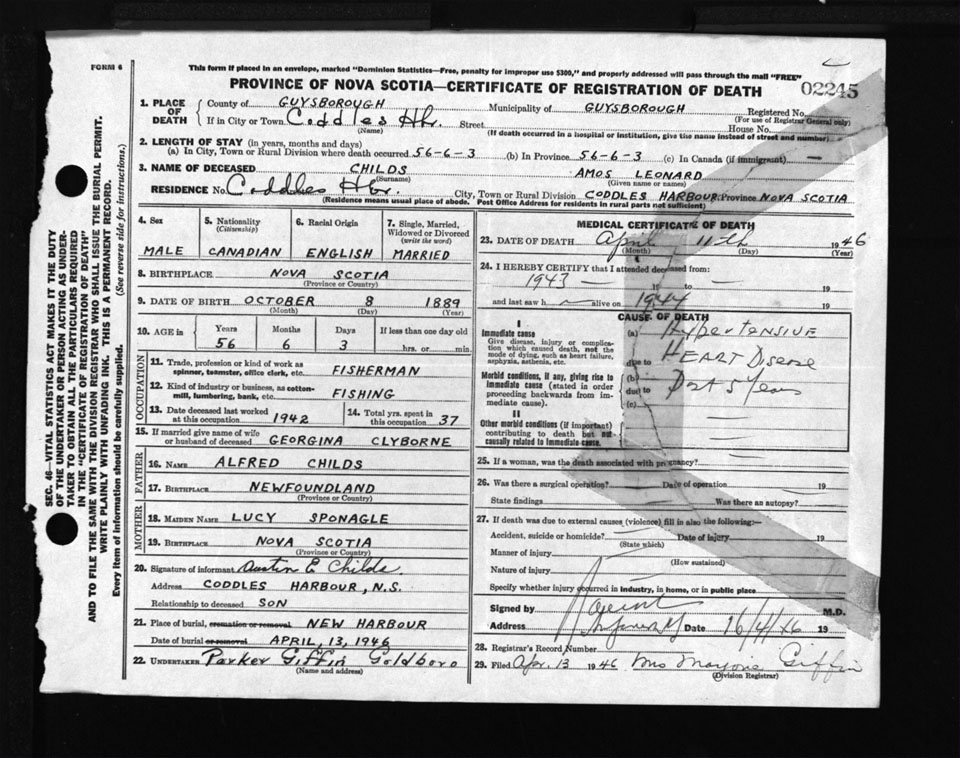 FORM 6
This form if placed in an envelope, marked "Dominion Statistics—Free, penalty for improper use $300," and properly addressed will pass through the mail "FREE"
PROVINCE OF NOVA SCOTIA—CERTIFICATE OF REGISTRATION OF DEATH
02245
1. PLACE OF DEATH County of GUYSBOROUGH Municipality of GUYSBOROUGH Registered No.
(For use of Registrar General only)
If in City or Town Coddles Hbr. Street House No.
(Name) (If death occurred in a hospital or institution, give the name instead of street and number)
2. LENGTH OF STAY (in years, months and days)
(a) In City, Town or Rural Division where death occurred 56-6-3 (b) In Province 56-6-3 (c) In Canada (if immigrant) —
3. NAME OF DECEASED CHILDS AMOS LEONARD
(Surname) (Given name or names)
RESIDENCE No. Coddles Hbr. City, Town or Rural Division CODDLES HARBOUR Province NOVA SCOTIA
(Residence means usual place of abode. Post Office Address for residents in rural parts not sufficient)
SEC. 46—VITAL STATISTICS ACT MAKES IT THE DUTY
OF THE UNDERTAKER OR PERSON ACTING AS UNDER-
TAKER TO OBTAIN ALL THE PARTICULARS REQUIRED
IN THE "CERTIFICATE OF REGISTRATION OF DEATH"
AND TO FILE THE SAME WITH THE DIVISION REGISTRAR WHO SHALL ISSUE THE BURIAL PERMIT.
WRITE PLAINLY WITH UNFADING INK. THIS IS A PERMANENT RECORD.
Every item of information should be carefully supplied. (See reverse side for instructions.)
4. Sex 5. Nationality (Citizenship) 6. Racial Origin 7. Single, Married, Widowed or Divorced (write the word)
MALE CANADIAN ENGLISH MARRIED
8. BIRTHPLACE NOVA SCOTIA
(Province or Country)
9. DATE OF BIRTH OCTOBER 8 1889
(Month) (Day) (Year)
10. AGE in Years Months Days If less than one day old
56 6 3 hrs. or min.
OCCUPATION
11. Trade, profession or kind of work as
spinner, teamster, office clerk, etc. FISHERMAN
12. Kind of industry or business, as cotton-
mill, lumbering, bank, etc. FISHING
13. Date deceased last worked at this occupation 1942 14. Total yrs. spent in this occupation 37
15. If married give name of wife
or husband of deceased GEORGINA CLYBORNE
FATHER
16. NAME ALFRED CHILDS
17. BIRTHPLACE NEWFOUNDLAND
(Province or Country)
MOTHER
18. MAIDEN NAME LUCY SPONAGLE
19. BIRTHPLACE NOVA SCOTIA
(Province or Country)
20. Signature of informant Austin E Childs
Address CODDLES HARBOUR, N.S.
Relationship to deceased SON
21. Place of burial, cremation or removal NEW HARBOUR
Date of burial or removal APRIL, 13, 1946
22. UNDERTAKER Parker Giffin Goldboro
(Name and address)
MEDICAL CERTIFICATE OF DEATH
23. DATE OF DEATH April 11th 1946
(Month) (Day) (Year)
24. I HEREBY CERTIFY that I attended deceased from:
1943 — to — 19
and last saw h alive on 1944 19
CAUSE OF DEATH
I
Immediate cause
Give disease, injury or complica-
tion which caused death, not the
mode of dying, such as heart failure,
asphyxia, asthenia, etc.
(a) Hypertensive
due to Heart Disease
Morbid conditions, if any, giving rise to
immediate cause (stated in order
proceeding backwards from im-
mediate cause).
(b)
due to
(c)
5 Years
II
Other morbid conditions (if important)
contributing to death but not
causally related to immediate cause.
25. If a woman, was the death associated with pregnancy?
26. Was there a surgical operation? Date of operation 19
State findings Was there an autopsy?
27. If death was due to external causes (violence) fill in also the following:—
Accident, suicide or homicide? Date of injury 19
(State which)
Manner of injury
(How sustained)
Nature of injury
Specify whether injury occurred in industry, in home, or in public place
Signed by M.D.
Address Date 16/4/46 19
28. Registrar's Record Number
29. Filed Apr. 13 1946 Mrs Marjorie Giffin
(Division Registrar)